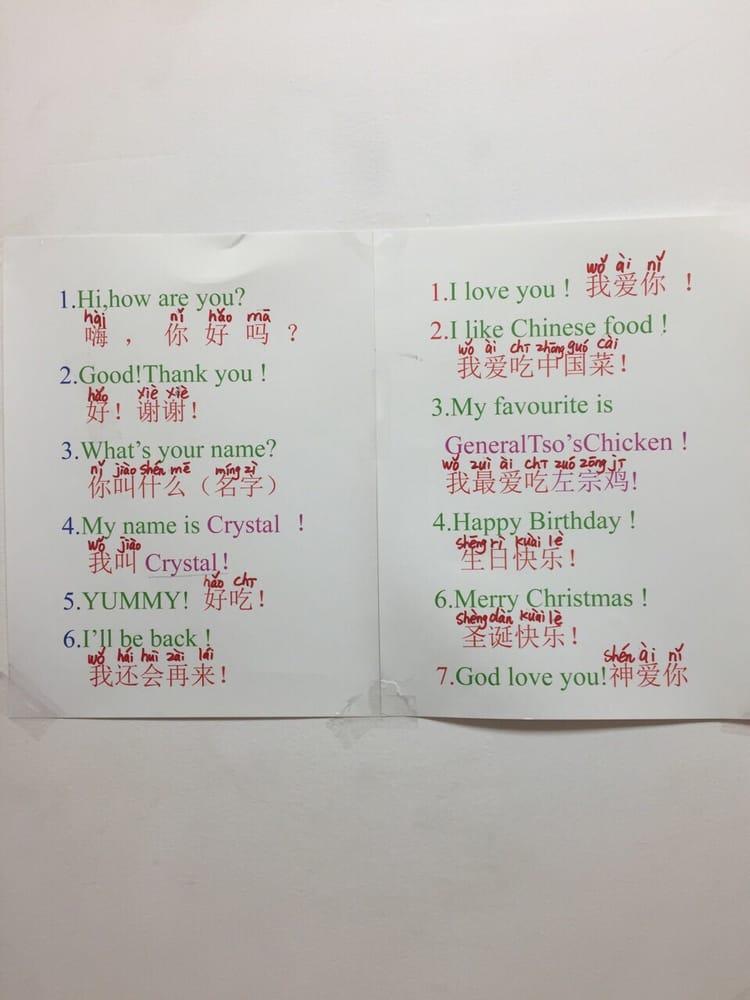 1.Hi,how are you?
hài nǐ hǎo mā
嗨 ， 你 好 吗 ？
2.Good!Thank you !
hǎo xiè xiè
好！谢谢！
3.What's your name?
nǐ jiào shén mē míng zì
你叫什么（名字）
4.My name is Crystal !
wǒ jiào
我叫 Crystal!
hǎo chī
5.YUMMY! 好吃！
6.I'll be back !
wǒ hái huì zài lái
我还会再来！
wǒ ài nǐ
1.I love you ! 我爱你 ！
2.I like Chinese food !
wǒ ài chī zhōng guó cài
我爱吃中国菜！
3.My favourite is
GeneralTso'sChicken !
wǒ zuì ài chī zuǒ zōng jī
我最爱吃左宗鸡!
4.Happy Birthday !
shēng rì kuài lè
生日快乐！
6.Merry Christmas !
shèng dàn kuài lè
圣诞快乐！
shén ài nǐ
7.God love you!神爱你